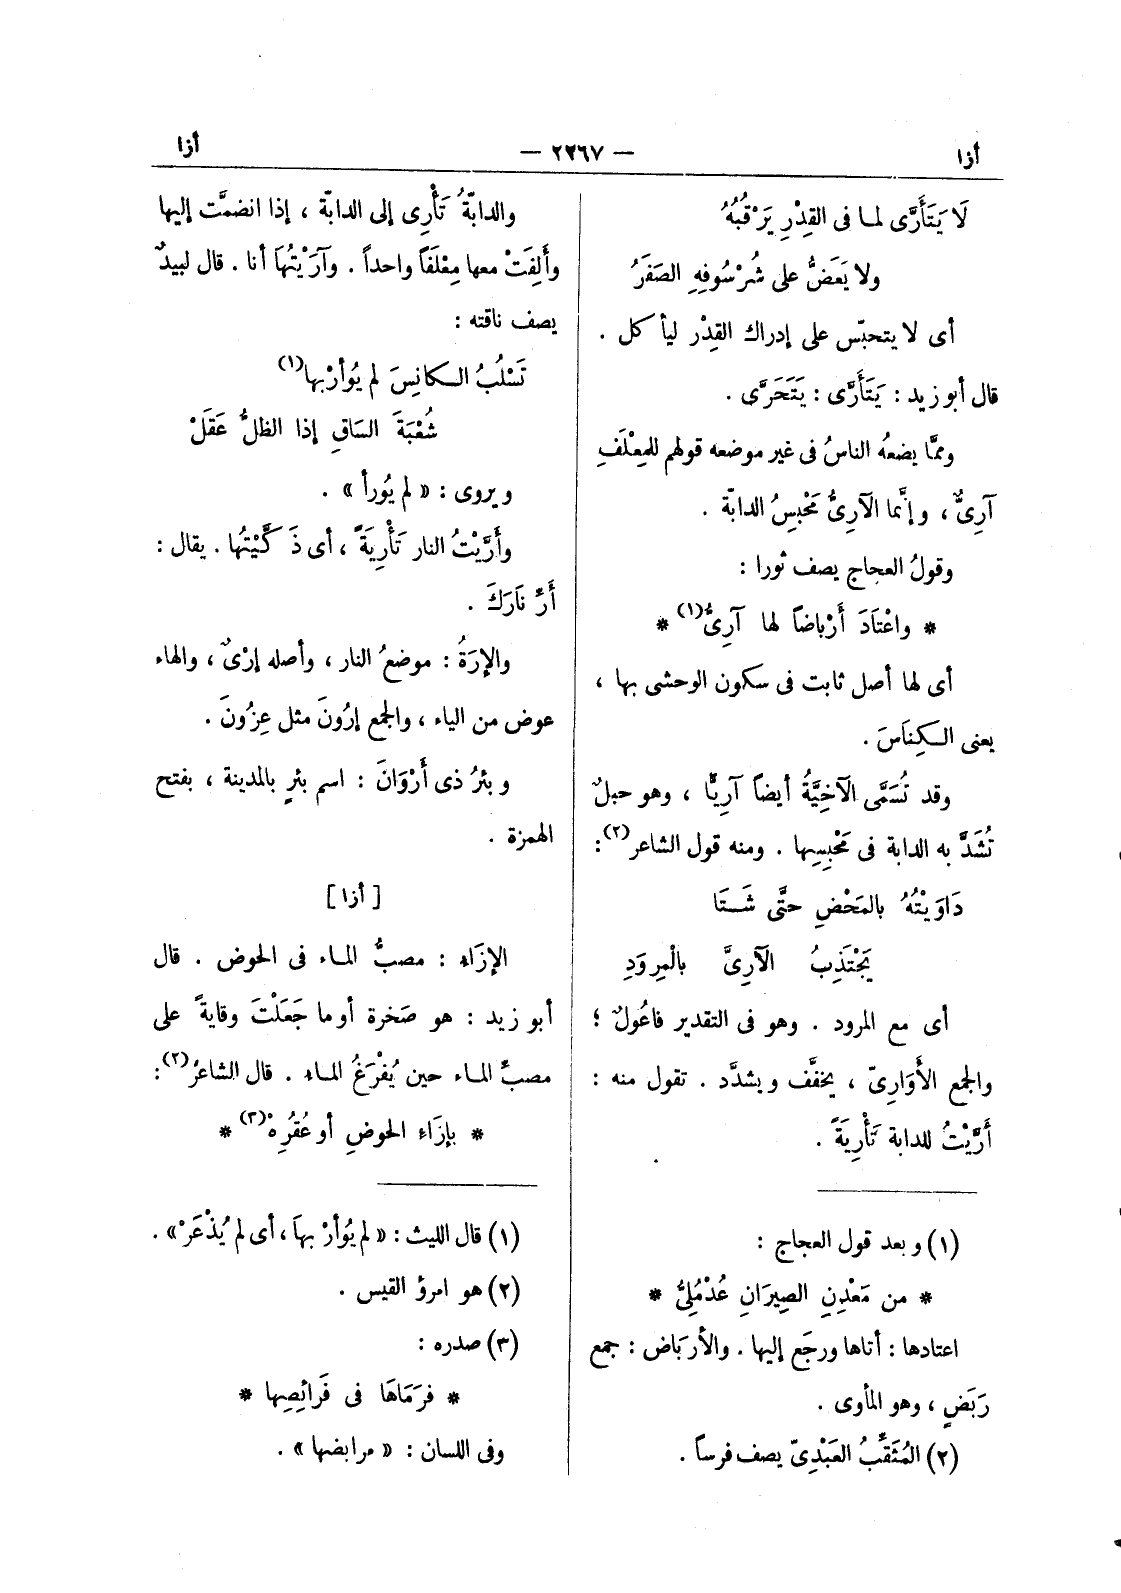 أزا
— ٢٢٦٧ —
أزا
لَا يَتَأَرَّى لما فى القِدْرِ يَرْقبُهُ
ولا يَعَضُّ على شُرْسُوفِهِ الصَفَرُ
أى لا يتحبّس على إدراك القِدْر ليأكل .
قال أبو زيد : يَتَأَرَّى : يَتَحَرَّى .
وممَّا يضعُه الناسُ فى غير موضعه قولهم للمِعْلَفِ
آرِىٌّ ، وإنَّما الآرِىُّ مَحْبِسُ الدابّة .
وقولُ العجاج يصف ثورا :
* واعْتَادَ أَرْباضاً لها آرِىُّ (١) *
أى لها أصل ثابت فى سكون الوحشى بها ،
يعنى الكِنَاسَ .
وقد تُسَمَّى الآخِيَّةُ أيضاً آرِيًّا ، وهو حبلٌ
تُشَدُّ به الدابة فى مَحْبِسِها . ومنه قول الشاعر (٢) :
دَاوَيْتُهُ بالمَحْضِ حتَّى شَتَا
يَجْتَذِبُ الآرِىَّ بالْمِرْوَدِ
أى مع المرود . وهو فى التقدير فاعُولٌ ؛
والجمع الأَوَارِىّ ، يخفَّف ويشدَّد . تقول منه :
أَرَّيْتُ للدابة تَأْرِيَةً .
(١) وبعد قول العجاج :
* من مَعْدِنِ الصِيرَانِ عُدْمُلِىُّ *
اعتادها : أتاها ورجَع إليها . والأرَباض : جمع
رَبَضٍ ، وهو المأوى .
(٢) المُثَقِّبُ العَبْدِىّ يصف فرساً .
والدابّةُ تَأْرِى إلى الدابّة ، إذا انضمَّت إليها
وأَلِفَتْ معها مِعْلَفاً واحداً . وآرَيْتُهَا أنا . قال لبيدٌ
يصف ناقته :
تَسْلُبُ الكانِسَ لم يُوأَرْ بها (١)
شُعْبَةَ السَاقِ إذا الظلُّ عَقَلْ
ويروى : « لم يُورأ » .
وأَرَّيْتُ النار تَأْرِيَةً ، أى ذَكَّيْتُها . يقال :
أَرِّ نَارَكَ .
والإرَةُ : موضعُ النار ، وأصله إرْىٌ ، والهاء
عوض من الياء ، والجمع إرُونَ مثل عِزُونَ .
وبئرُ ذى أَرْوَانَ : اسم بئرٍ بالمدينة ، بفتح
الهمزة .
[ أزا ]
الإزَاءِ : مصبُّ الماء فى الحوض . قال
أبو زيد : هو صَخرة أو ما جَعَلْتَ وقايةً على
مصبِّ الماء حين يُفْرَغُ الماء . قال الشاعرُ (٢) :
* بإزَاءِ الحوضِ أو عُقُرِهْ (٣) *
(١) قال الليث : « لم يُوأَرْ بهاَ ، أى لم يُذْعَرْ » .
(٢) هو امرؤ القيس .
(٣) صدره :
* فرَمَاهَا فى فَرَائِصِها *
وفى اللسان : « مرابضها » .